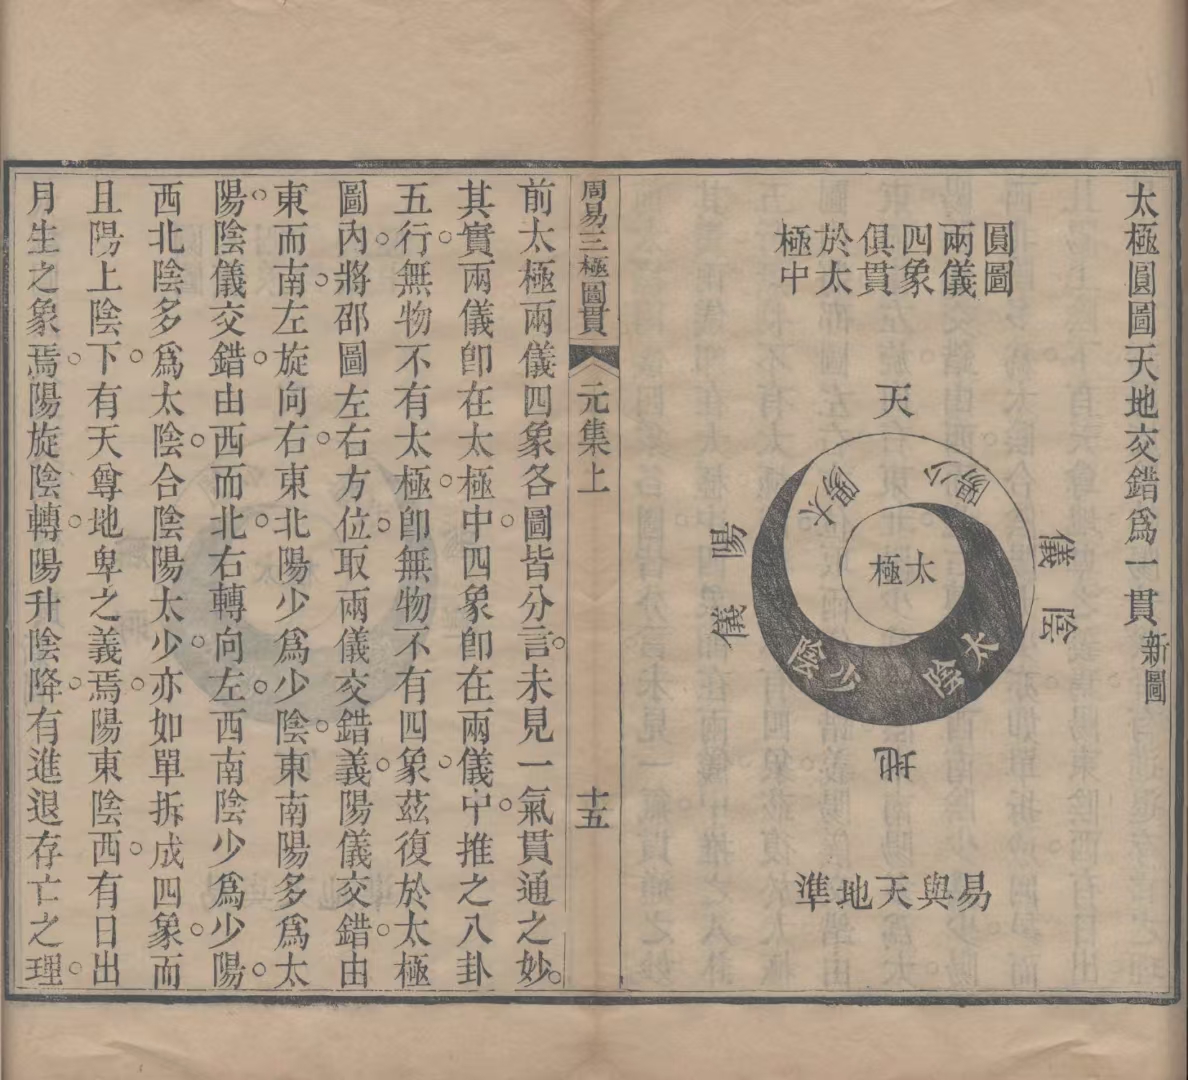 太極圓圖天地交錯爲一貫新圖
圓圖
兩儀
四象
俱貫
於太
極中
天
少陽
太陽
陰儀
陽儀
太極
太陰
少陰
地
易與天地準
周易三極圖貫 元集上 十五
前太極兩儀四象各圖皆分言。未見一氣貫通之妙。
其實兩儀卽在太極中。四象卽在兩儀中。推之八卦
五行。無物不有太極。卽無物不有四象。茲復於太極
圖內。將邵圖左右方位。取兩儀交錯義。陽儀交錯。由
東而南。左旋向右。東北陽少爲少陰。東南陽多爲太
陽。陰儀交錯。由西而北。右轉向左。西南陰少爲少陽。
西北陰多爲太陰。合陰陽太少。亦如單拆成四象。而
且陽上陰下。有天尊地卑之義焉。陽東陰西。有日出
月生之象焉。陽旋陰轉。陽升陰降。有進退存亡之理。